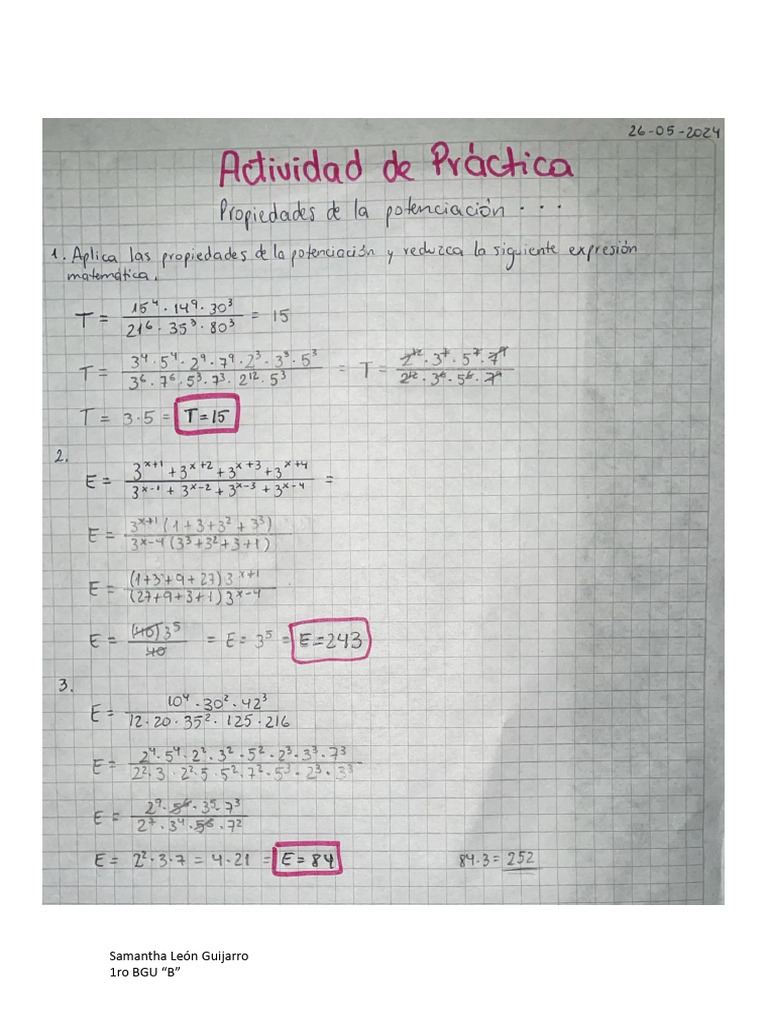 26-05-2024
Actividad de Práctica
Propiedades de la potenciación . . .
1. Aplica las propiedades de la potenciación y reduzca la siguiente expresión
matemática.
T = (15⁴ · 14⁹ · 30³) / (21⁶ · 35³ · 80³) = 15
T = (3⁴ · 5⁴ · 2⁹ · 7⁹ · 2³ · 3³ · 5³) / (3⁶ · 7⁶ · 5³ · 7³ · 2¹² · 5³) = T = (2¹² · 3⁷ · 5⁷ · 7⁹) / (2¹² · 3⁶ · 5⁶ · 7⁹)
T = 3·5 = T=15
2.
E = (3ˣ⁺¹ + 3ˣ⁺² + 3ˣ⁺³ + 3ˣ⁺⁴) / (3ˣ⁻¹ + 3ˣ⁻² + 3ˣ⁻³ + 3ˣ⁻⁴) =
E = 3ˣ⁺¹(1+3+3²+3³) / 3ˣ⁻⁴(3³+3²+3+1)
E = (1+3+9+27)3ˣ⁺¹ / (27+9+3+1)3ˣ⁻⁴
E = (40)3⁵ / 40 = E = 3⁵ = E=243
3.
E = (10⁴ · 30² · 42³) / (12 · 20 · 35² · 125 · 216)
E = (2⁴ · 5⁴ · 2² · 3² · 5² · 2³ · 3³ · 7³) / (2² · 3 · 2² · 5 · 5² · 7² · 5³ · 2³ · 3³)
E = (2⁹ · 5⁶ · 3⁵ · 7³) / (2⁷ · 3⁴ · 5⁶ · 7²)
E = 2² · 3 · 7 = 4 · 21 = E=84
84·3 = 252
Samantha León Guijarro
1ro BGU “B”